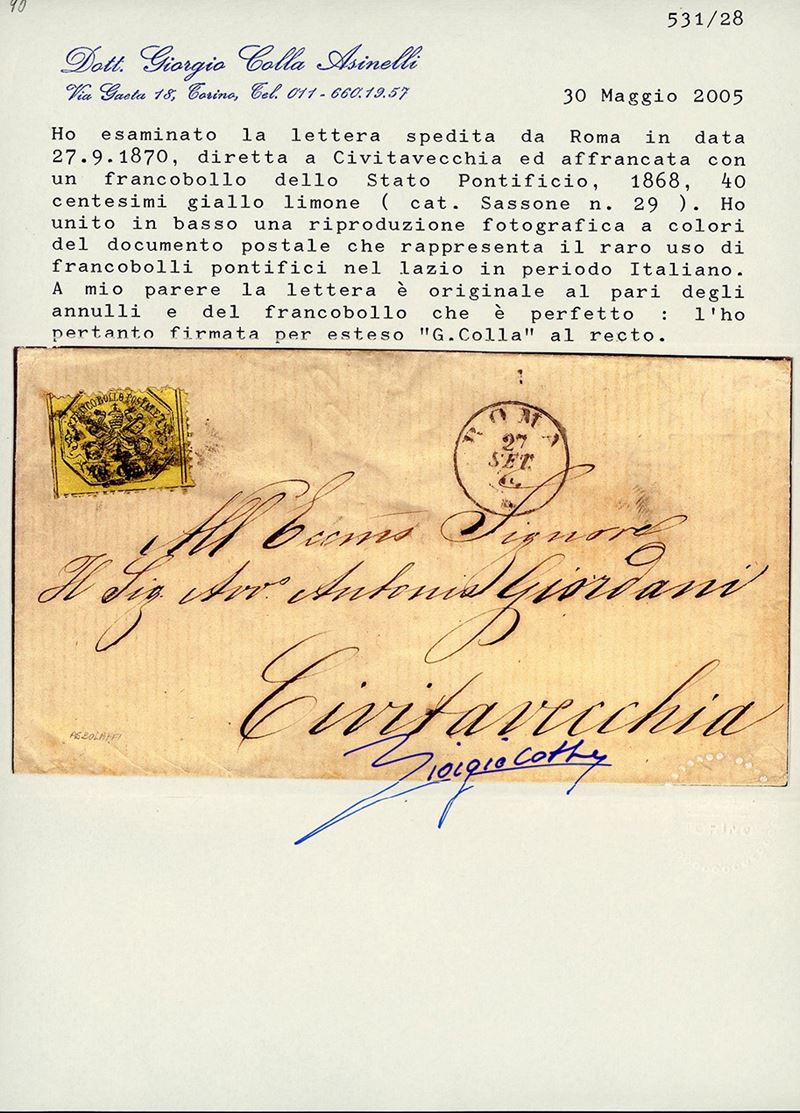 90
531/28
Dott. Giorgio Colla Asinelli
Via Gaeta 18, Torino, Tel. 011 - 660.19.57
30 Maggio 2005
Ho esaminato la lettera spedita da Roma in data
27.9.1870, diretta a Civitavecchia ed affrancata con
un francobollo dello Stato Pontificio, 1868, 40
centesimi giallo limone ( cat. Sassone n. 29 ). Ho
unito in basso una riproduzione fotografica a colori
del documento postale che rappresenta il raro uso di
francobolli pontifici nel lazio in periodo Italiano.
A mio parere la lettera è originale al pari degli
annulli e del francobollo che è perfetto : l'ho
pertanto firmata per esteso "G.Colla" al recto.
FRANCO BOLLO POSTALE
ROMA
27
SET.
All Eccmo Signore
Il Sig Avvo Antonio Giordani
Civitavecchia
Giorgio Colla
TORINO